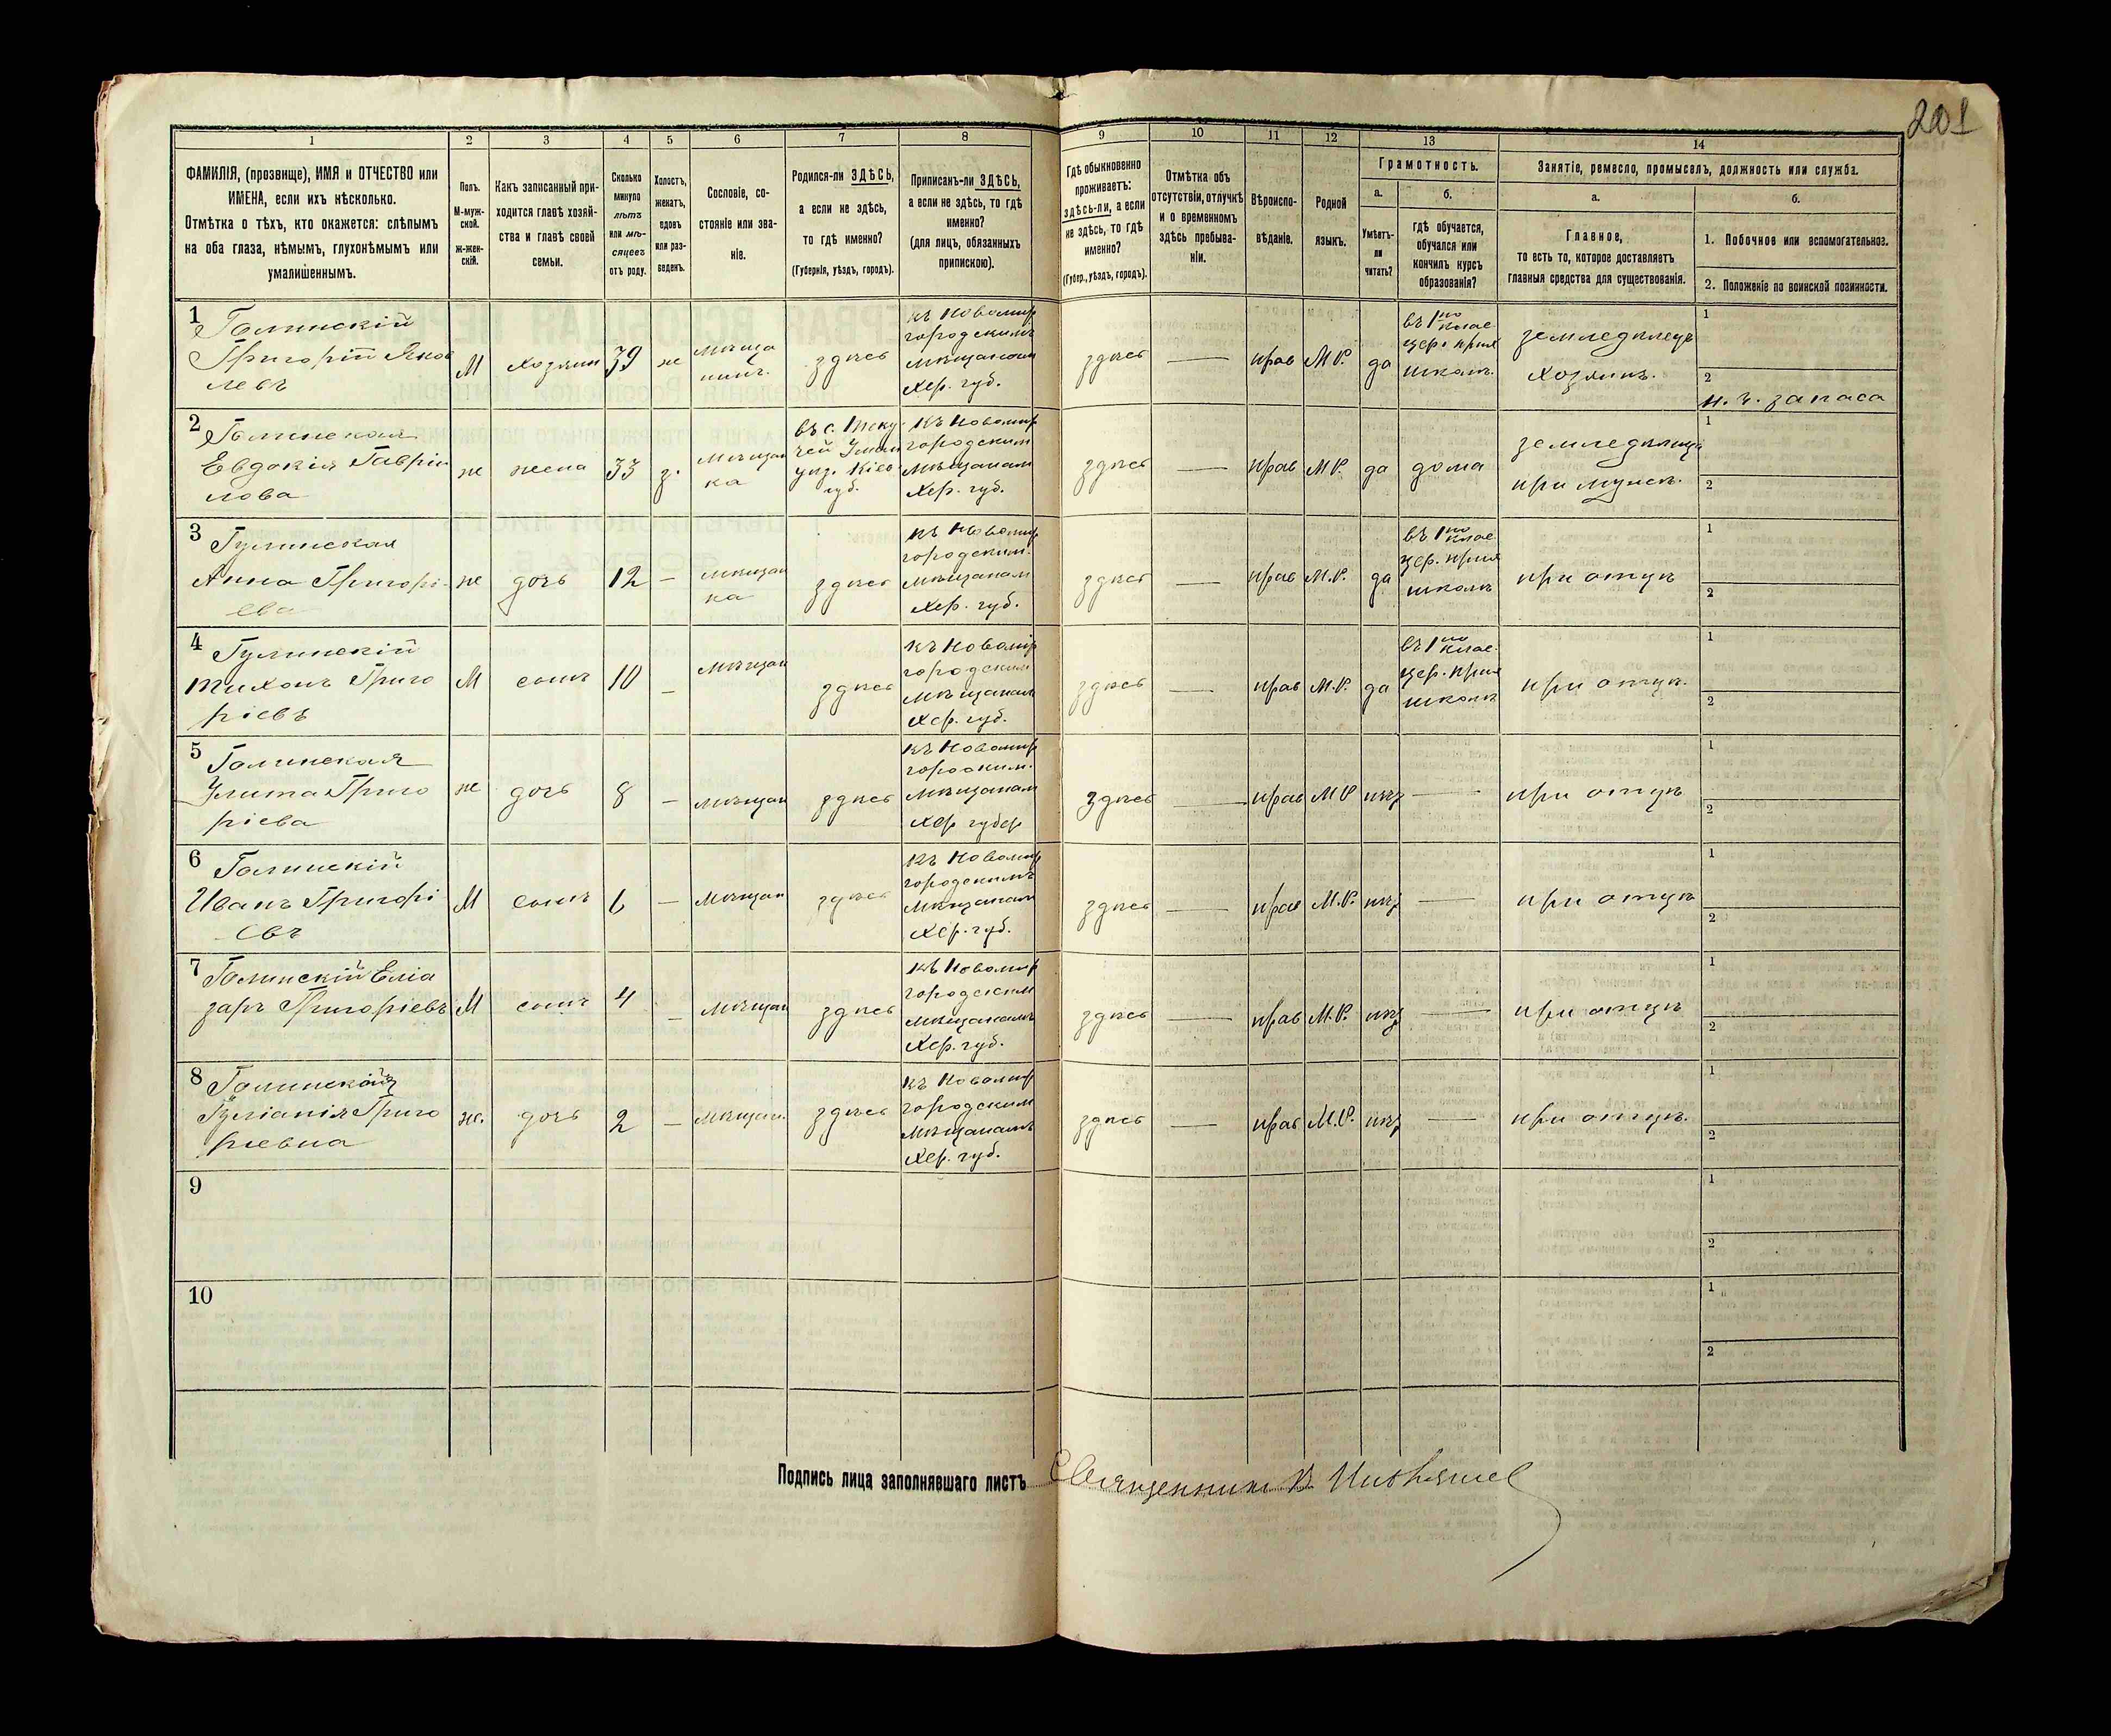 201
1
2
3
4
5
6
7
8
9
10
11
12
13
14
ФАМИЛІЯ, (прозвище), ИМЯ и ОТЧЕСТВО или
ИМЕНА, если ихъ нѣсколько.
Отмѣтка о тѣхъ, кто окажется: слѣпымъ
на оба глаза, нѣмымъ, глухонѣмымъ или
умалишеннымъ.
Полъ.
М-муж-
ской.
ж-жен-
скій.
Какъ записанный при-
ходится главѣ хозяй-
ства и главѣ своей
семьи.
Сколько
минуло
лѣтъ
или мѣ-
сяцевъ
отъ роду.
Холостъ,
женатъ,
вдовъ
или раз-
веденъ.
Сословіе, со-
стояніе или зва-
ніе.
Родился-ли ЗДѢСЬ,
а если не здѣсь,
то гдѣ именно?
(Губернія, уѣздъ, городъ).
Приписанъ-ли ЗДѢСЬ,
а если не здѣсь, то гдѣ
именно?
(для лицъ, обязанныхъ
припискою).
Гдѣ обыкновенно
проживаетъ:
здѣсь-ли, а если
не здѣсь, то гдѣ
именно?
(Губер., уѣздъ, городъ).
Отмѣтка объ
отсутствіи, отлучкѣ
и о временномъ
здѣсь пребыва-
ніи.
Вѣроиспо-
вѣданіе.
Родной
языкъ.
Грамотность.
а.
Умѣетъ-
ли
читать?
б.
гдѣ обучается,
обучался или
кончилъ курсъ
образованія?
Занятіе, ремесло, промыселъ, должность или служба.
а.
Главное,
то есть то, которое доставляетъ
главныя средства для существованія.
б.
1. Побочное или вспомогательное.
2. Положеніе по воинской повинности.
1
Голинскій
Григорій Яков
левъ
М
хозяин
39
ж
мѣща
нинъ.
здѣсь
къ Новомир
городскимъ
мѣщанам
Хер. губ.
здѣсь
—
прав
М.Р.
да
въ 1мъ клас
цер. прих
школѣ.
земледѣлецъ
хозяинъ.
1
2
н. ч. запаса
2
Голинская
Евдокія Гавріи
лова
ж
жена
33
з.
мѣщан
ка
въ с.
чей Уман
уѣз. Кіев
губ.
Къ Новомир
городским
мѣщанам
Хер. губ.
здѣсь
—
прав
М Р.
да
дома
земледѣлица
при мужѣ.
1
2
3
Гулинская
Анна Григорі-
ева
ж
дочь
12
—
мѣщан
ка
здѣсь
къ Новомир
городским.
мѣщанам
Хер. губ.
здѣсь
—
прав
М.Р.
да
въ 1мъ клас
цер. прих
школѣ
при отцѣ
1
2
4
Гулинскій
Тихонъ Григо
ріевъ
М
сынъ
10
—
мѣщан
здѣсь
къ Новомир
городским
мѣщанам
Хер. губ.
здѣсь
—
прав
М.Р.
да
въ 1мъ клас.
цер. прих
школѣ
при отцѣ.
1
2
5
Голинская
Улита Григо
ріева
ж
дочь
8
—
мѣщан
здѣсь
къ Новомир
мѣщанам
Хер губер
здѣсь
—
прав
М Р
нѣт
—
при отцѣ
1
2
6
Голинскій
Иванъ Григорі
евъ
М
сынъ
6
—
мѣщан
здѣсь
къ Новомир
городскимъ
мѣщанам
Хер. губ.
здѣсь
—
прав
М.Р.
нѣт
—
при отцѣ
1
2
7
Голинскій Еліа
заръ Григоріевъ
М
сынъ
4
—
мѣщан
здѣсь
къ Новомир
городским
мѣщанамъ
Хер. губ.
здѣсь
—
прав
М.Р.
нѣт
—
при отцѣ
1
2
8
Григо
ріевна
ж.
дочь
2
—
мѣщан.
здѣсь
къ Новомир
городским
мѣщанамъ
Хер. губ.
здѣсь
—
прав
М.Р.
нѣт
—
при отцѣ.
1
2
9
1
2
10
1
2
Подпись лица заполнявшаго листъ Священникъ